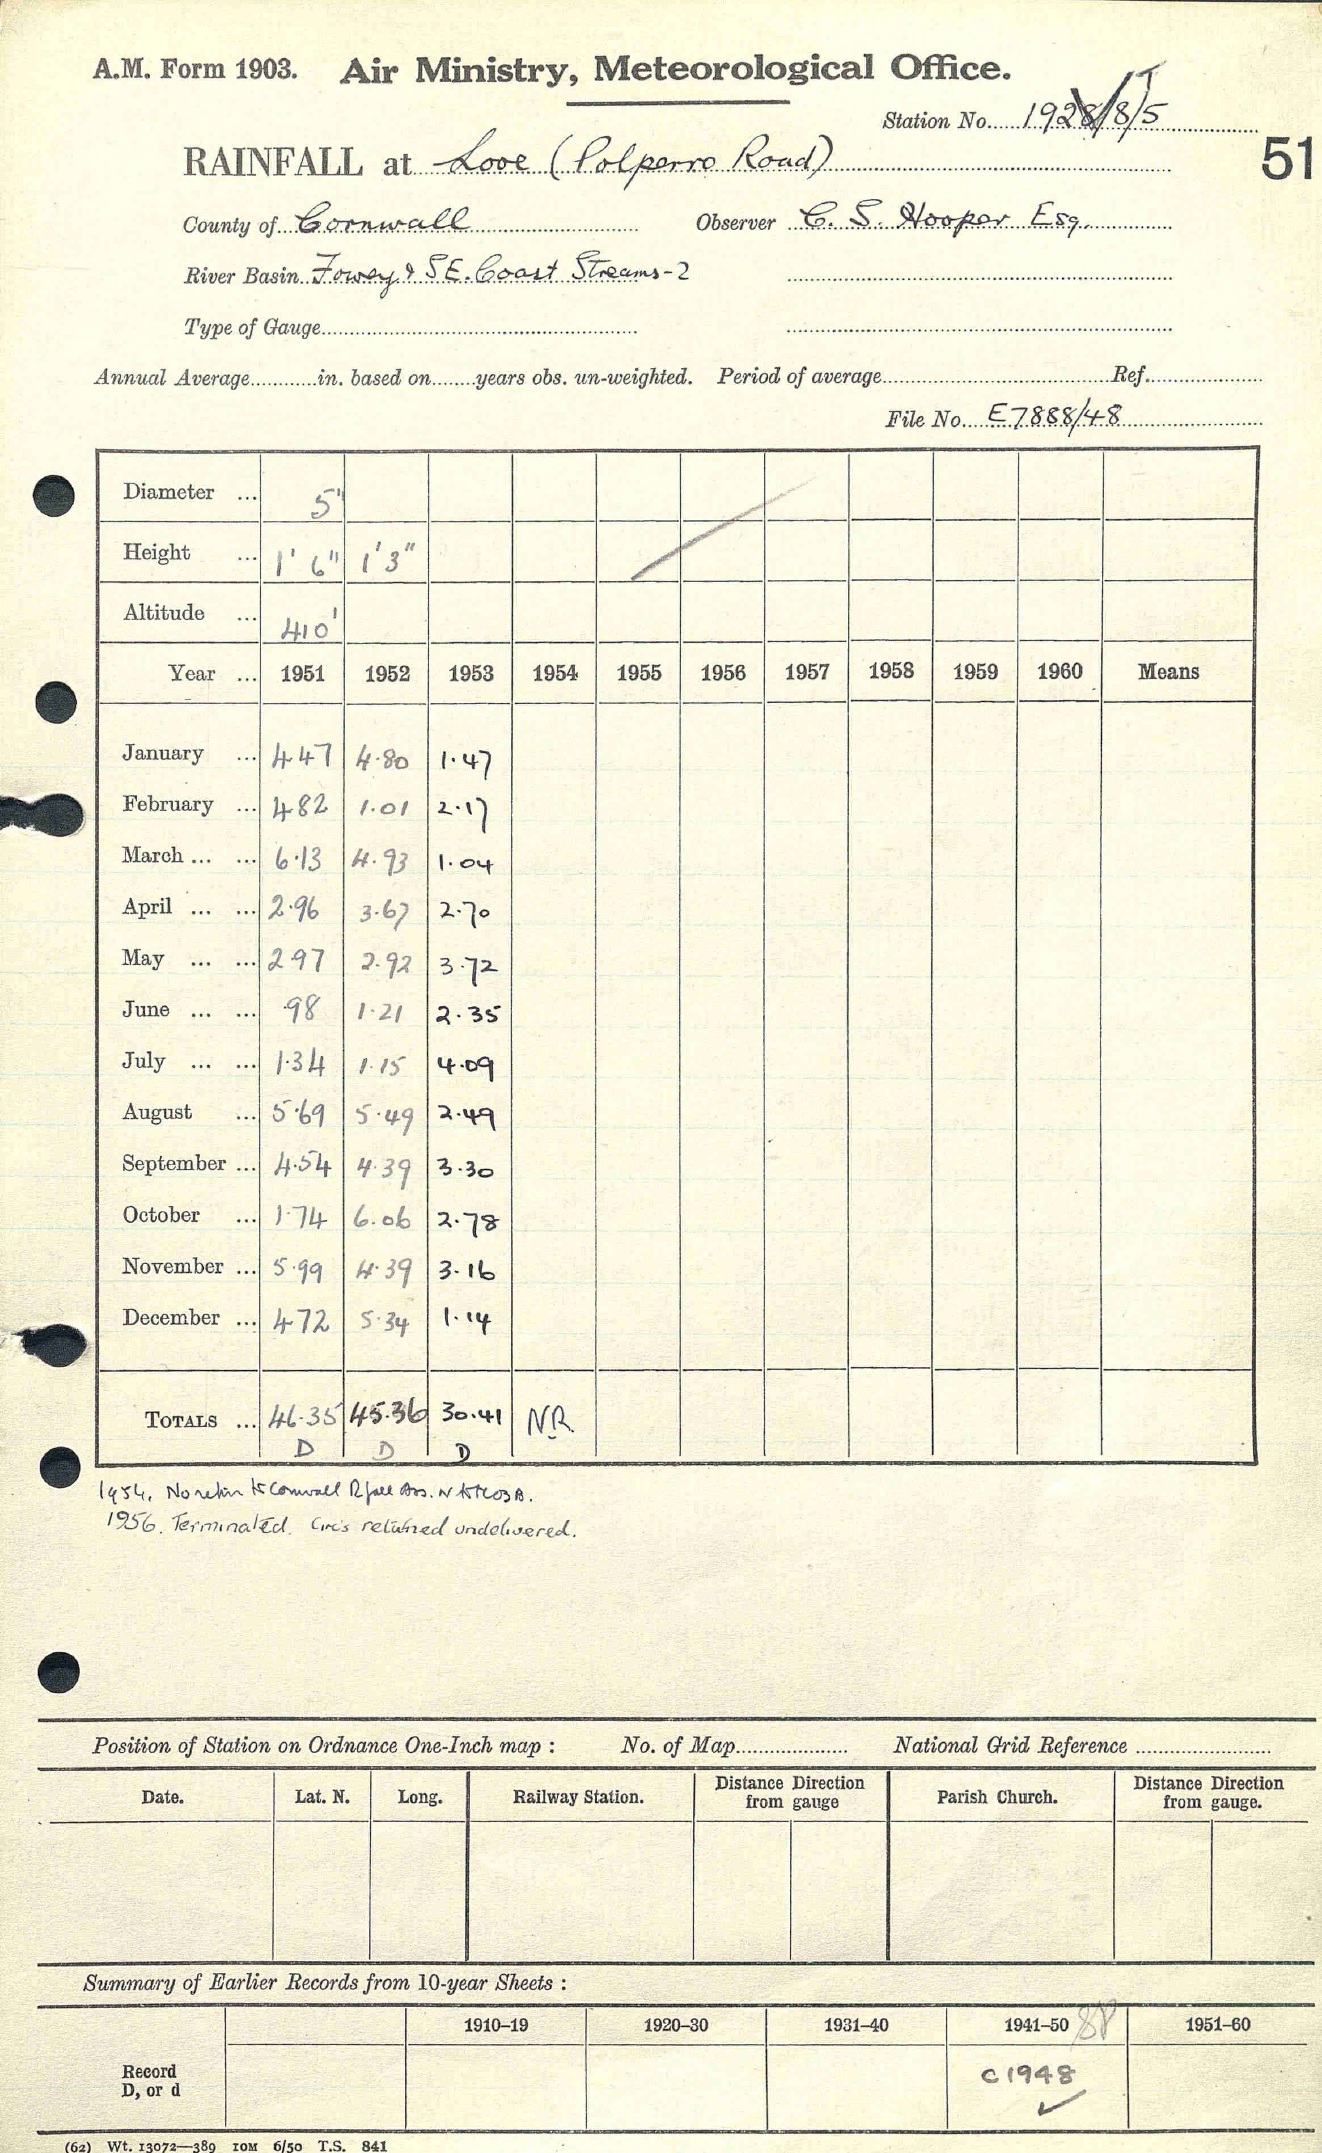 A.M. Form 1903. Air Ministry, Meteorological Office.
Station No. 1928/8/5
51
RAINFALL at Looe (Polperro Road)
County of Cornwall Observer C. S. Hooper Esq.
River Basin Fowey & S.E. Coast Streams-2
Type of Gauge
Annual Average in. based on years obs. un-weighted. Period of average Ref.
File No. E7888/48
Diameter ... 5"
Height ... 1' 6" 1' 3"
Altitude ... 410'
Year ... 1951 1952 1953 1954 1955 1956 1957 1958 1959 1960 Means
January ... 4.47 4.80 1.47
February ... 4.82 1.01 2.17
March ... ... 6.13 4.93 1.04
April ... ... 2.96 3.67 2.70
May ... ... 2.97 2.92 3.72
June ... ... .98 1.21 2.35
July ... ... 1.34 1.15 4.09
August ... 5.69 5.49 2.49
September ... 4.54 4.39 3.30
October ... 1.74 6.06 2.78
November ... 5.99 4.39 3.16
December ... 4.72 5.34 1.14
TOTALS ... 46.35 45.36 30.41 N.R.
D D D
1954. No return to Cornwall Rfall Ass.
1956. Terminated. Circs returned undelivered.
Position of Station on Ordnance One-Inch map : No. of Map National Grid Reference
Date. Lat. N. Long. Railway Station. Distance Direction from gauge Parish Church. Distance Direction from gauge.
Summary of Earlier Records from 10-year Sheets :
1910–19 1920–30 1931–40 1941–50 1951–60
Record D, or d
C1948 ✓
(62) Wt. 13072—389 10M 6/50 T.S. 841